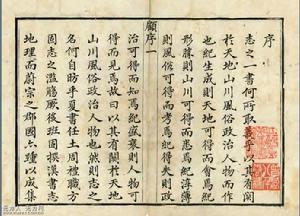 序
志之一書何所取義乎以其有關
於天地山川風俗政治人物而作
也紀生成則天地可得而會爲紀
形勝則山川可得而悉爲紀淳薄
則風俗可得而考爲紀得失則政
顧序 一
治可得而知爲紀盛衰則人物可
得而見焉故曰以其有關於天地
山川風俗政治人物也然則志之
名何自昉乎夏書任土周禮職方
固志之濫觴厥後班固撰漢書志
地理而蔚宗之郡國六種以成集